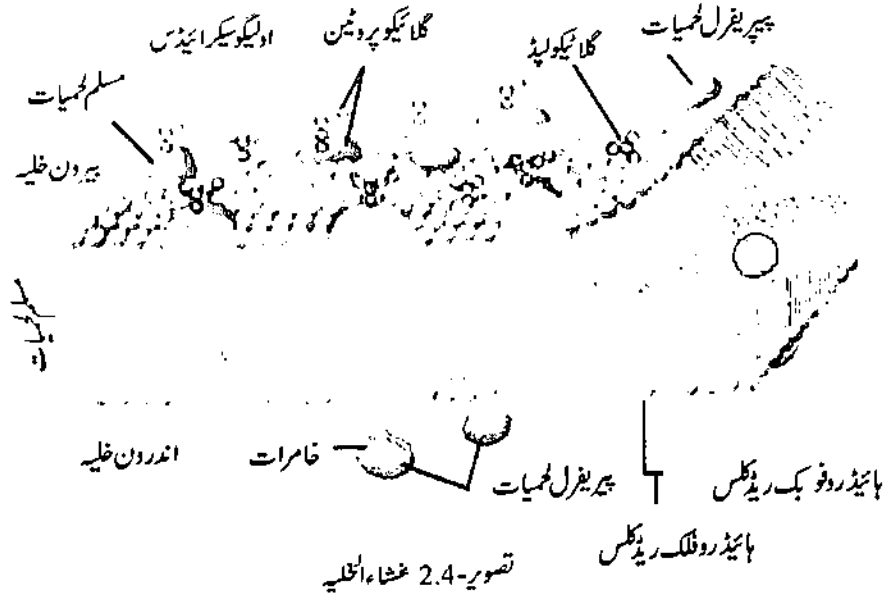 پیپریفرل لحمیات
گلائیکولپڈ
گلائیکو پروٹین
اولیگوسیکرائیڈس
مسلم لحمیات
بیرون خلیہ
اندرون خلیہ
خامرات
پیریفرل لحمیات
ہائیڈروفوبک ریڈکلس
ہائیڈروفلک ریڈکلس
تصویر-2.4 غشاء الخلیہ